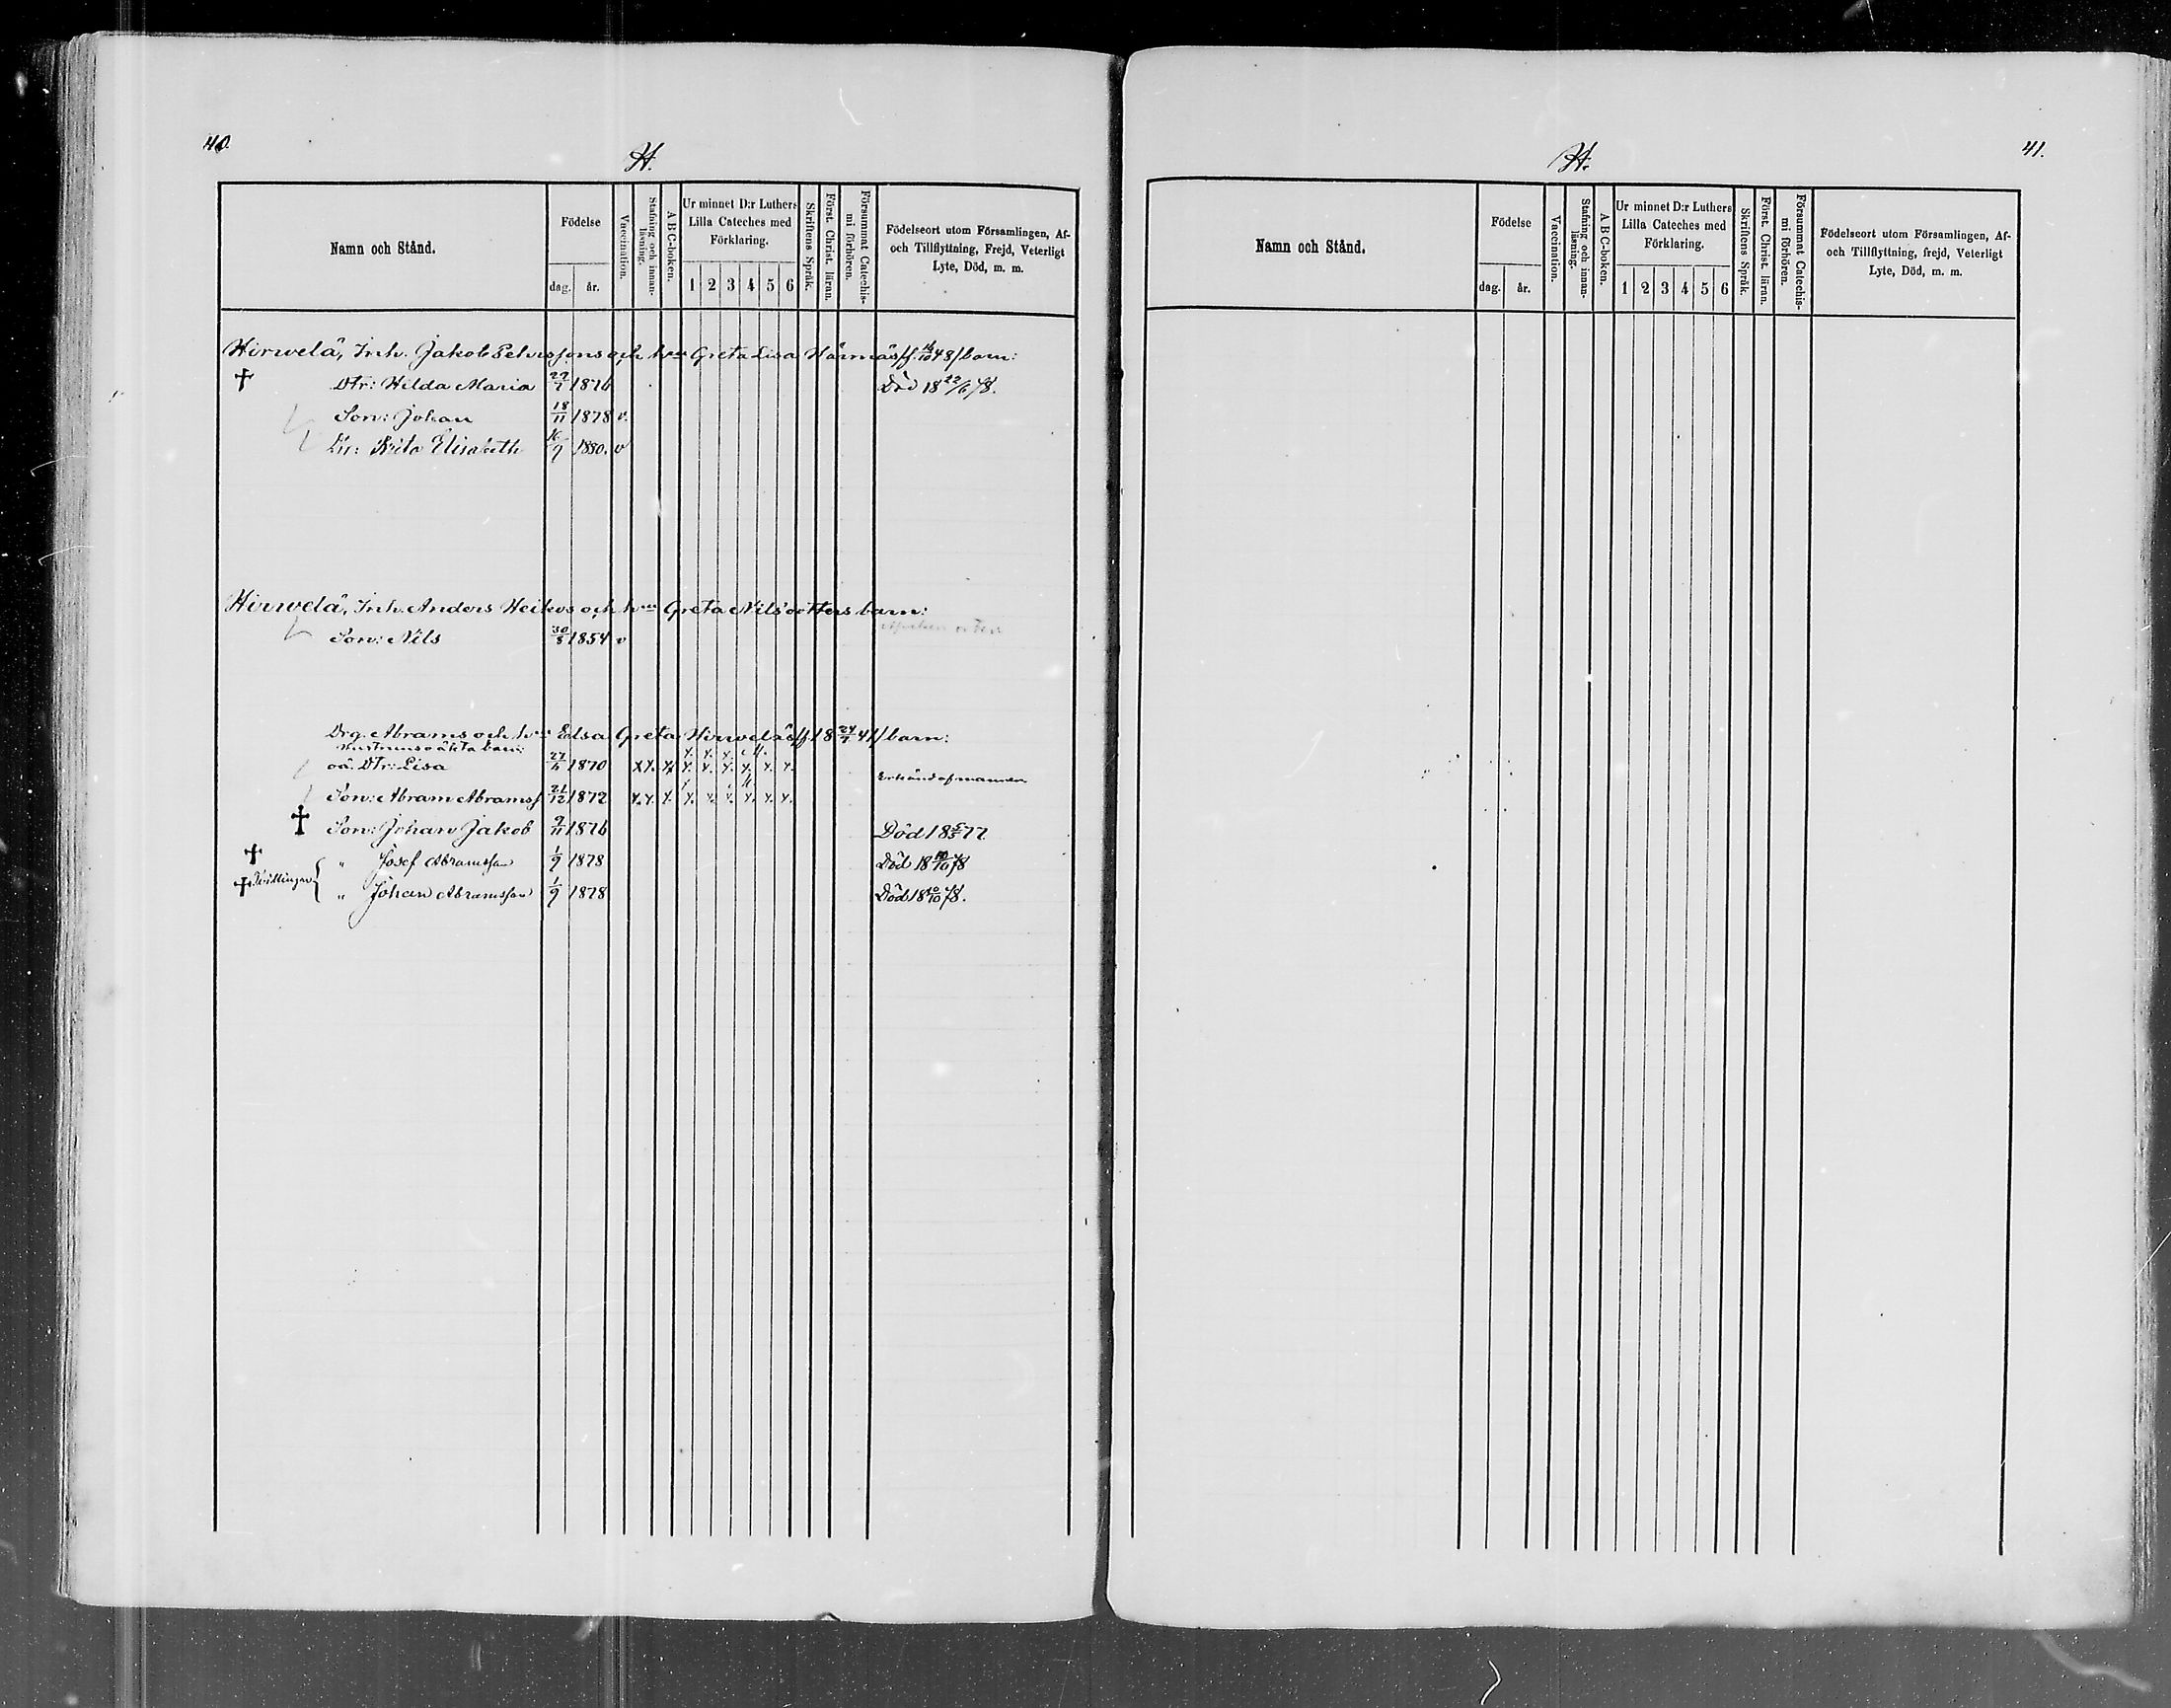 40.
H.
Namn och Stånd.
Födelse
dag.
år.
Vaccination.
Stafning och innan-
läsning.
A B C-boken.
Ur minnet D:r Luthers
Lilla Cateches med
Förklaring.
1 2 3 4 5 6
Skriftens Språk.
Först. Christ. läran.
Försummat Catechis-
mi förhören.
Födelseort utom Församlingen, Af-
och Tillflyttning, Frejd, Veterligt
Lyte, Död, m. m.
Hirwelä, Inh. Jakob Petterssons och hru Greta Lisa f. 48/ barn:
† Dtr: Hilda Maria 27/7 1876 Död 18 22/6 78.
Son: Johan 18/11 1878 v.
Dtr: Brita Elisabeth 16/9 1880. v
Hirwelä, Inh. Anders Heikus och hru Greta Nilsdotters barn:
Son: Nils 30/8 1854 v
Drg. Abrams och hru Elsa Greta Hirwelä /f. 18 24/7 41/ barn:
Hustruns oäkta barn:
oä. Dtr: Lisa 27/6 1870 x x. x x. x. x. x. x. x.
Son: Abram Abramss 21/12 1872 x. x. x. x. x. x. x. x. x.
† Son: Johan Jakob 9/11 1876 Död 18 5/5 77
† " Josef Abramsson 1/9 1878 Död 18 10/10 78
† Tvillingar { " Johan Abramsson 1/9 1878 Död 18 10/10 78.
41.
H.
Namn och Stånd.
Födelse
dag.
år.
Vaccination.
Stafning och innan-
läsning.
A B C-boken.
Ur minnet D:r Luthers
Lilla Cateches med
Förklaring.
1 2 3 4 5 6
Skriftens Språk.
Först. Christ. läran.
Försummat Catechis-
mi förhören.
Födelseort utom Församlingen, Af-
och Tillflyttning, frejd, Veterligt
Lyte, Död, m. m.